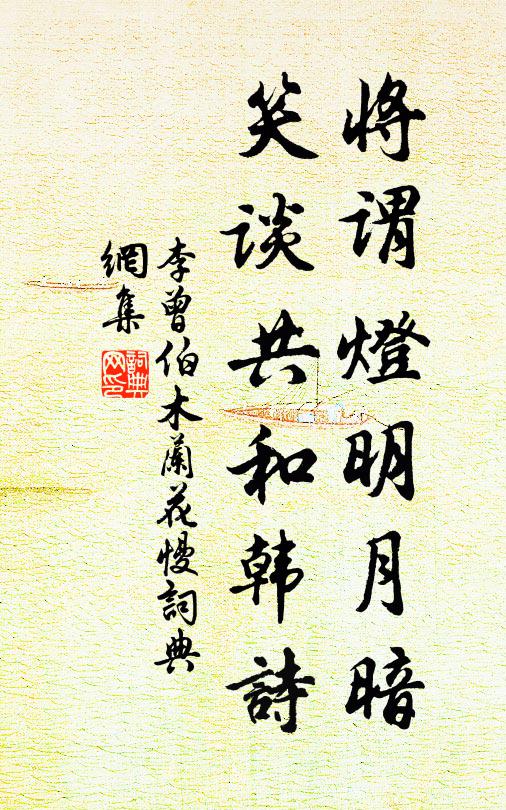 将谓燈明月暗
笑谈共和韩詩
李曾伯木蘭花慢詞典
網集
詞典網印